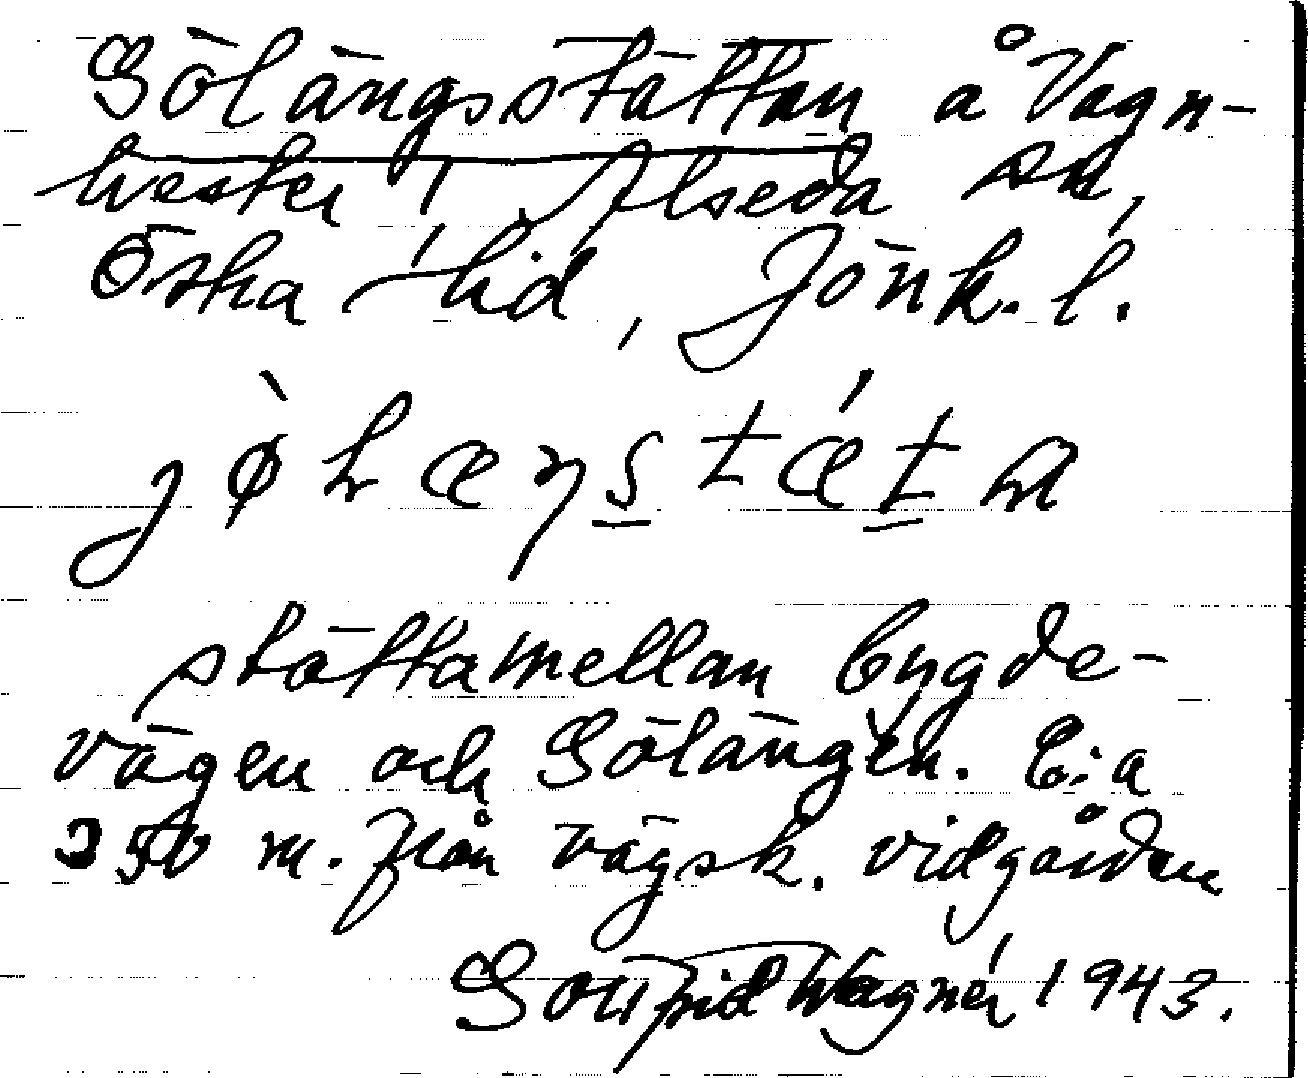 Gölängsstättan å Vagn-
hester i Alseda sn,
Östra hd, Jönk. l.
jø̀læŋstǽta
stätta mellan bygde-
vägen och Gölängen. C:a
350 m. från vägsk. vid gården
Gottfrid Wagnér 1943.